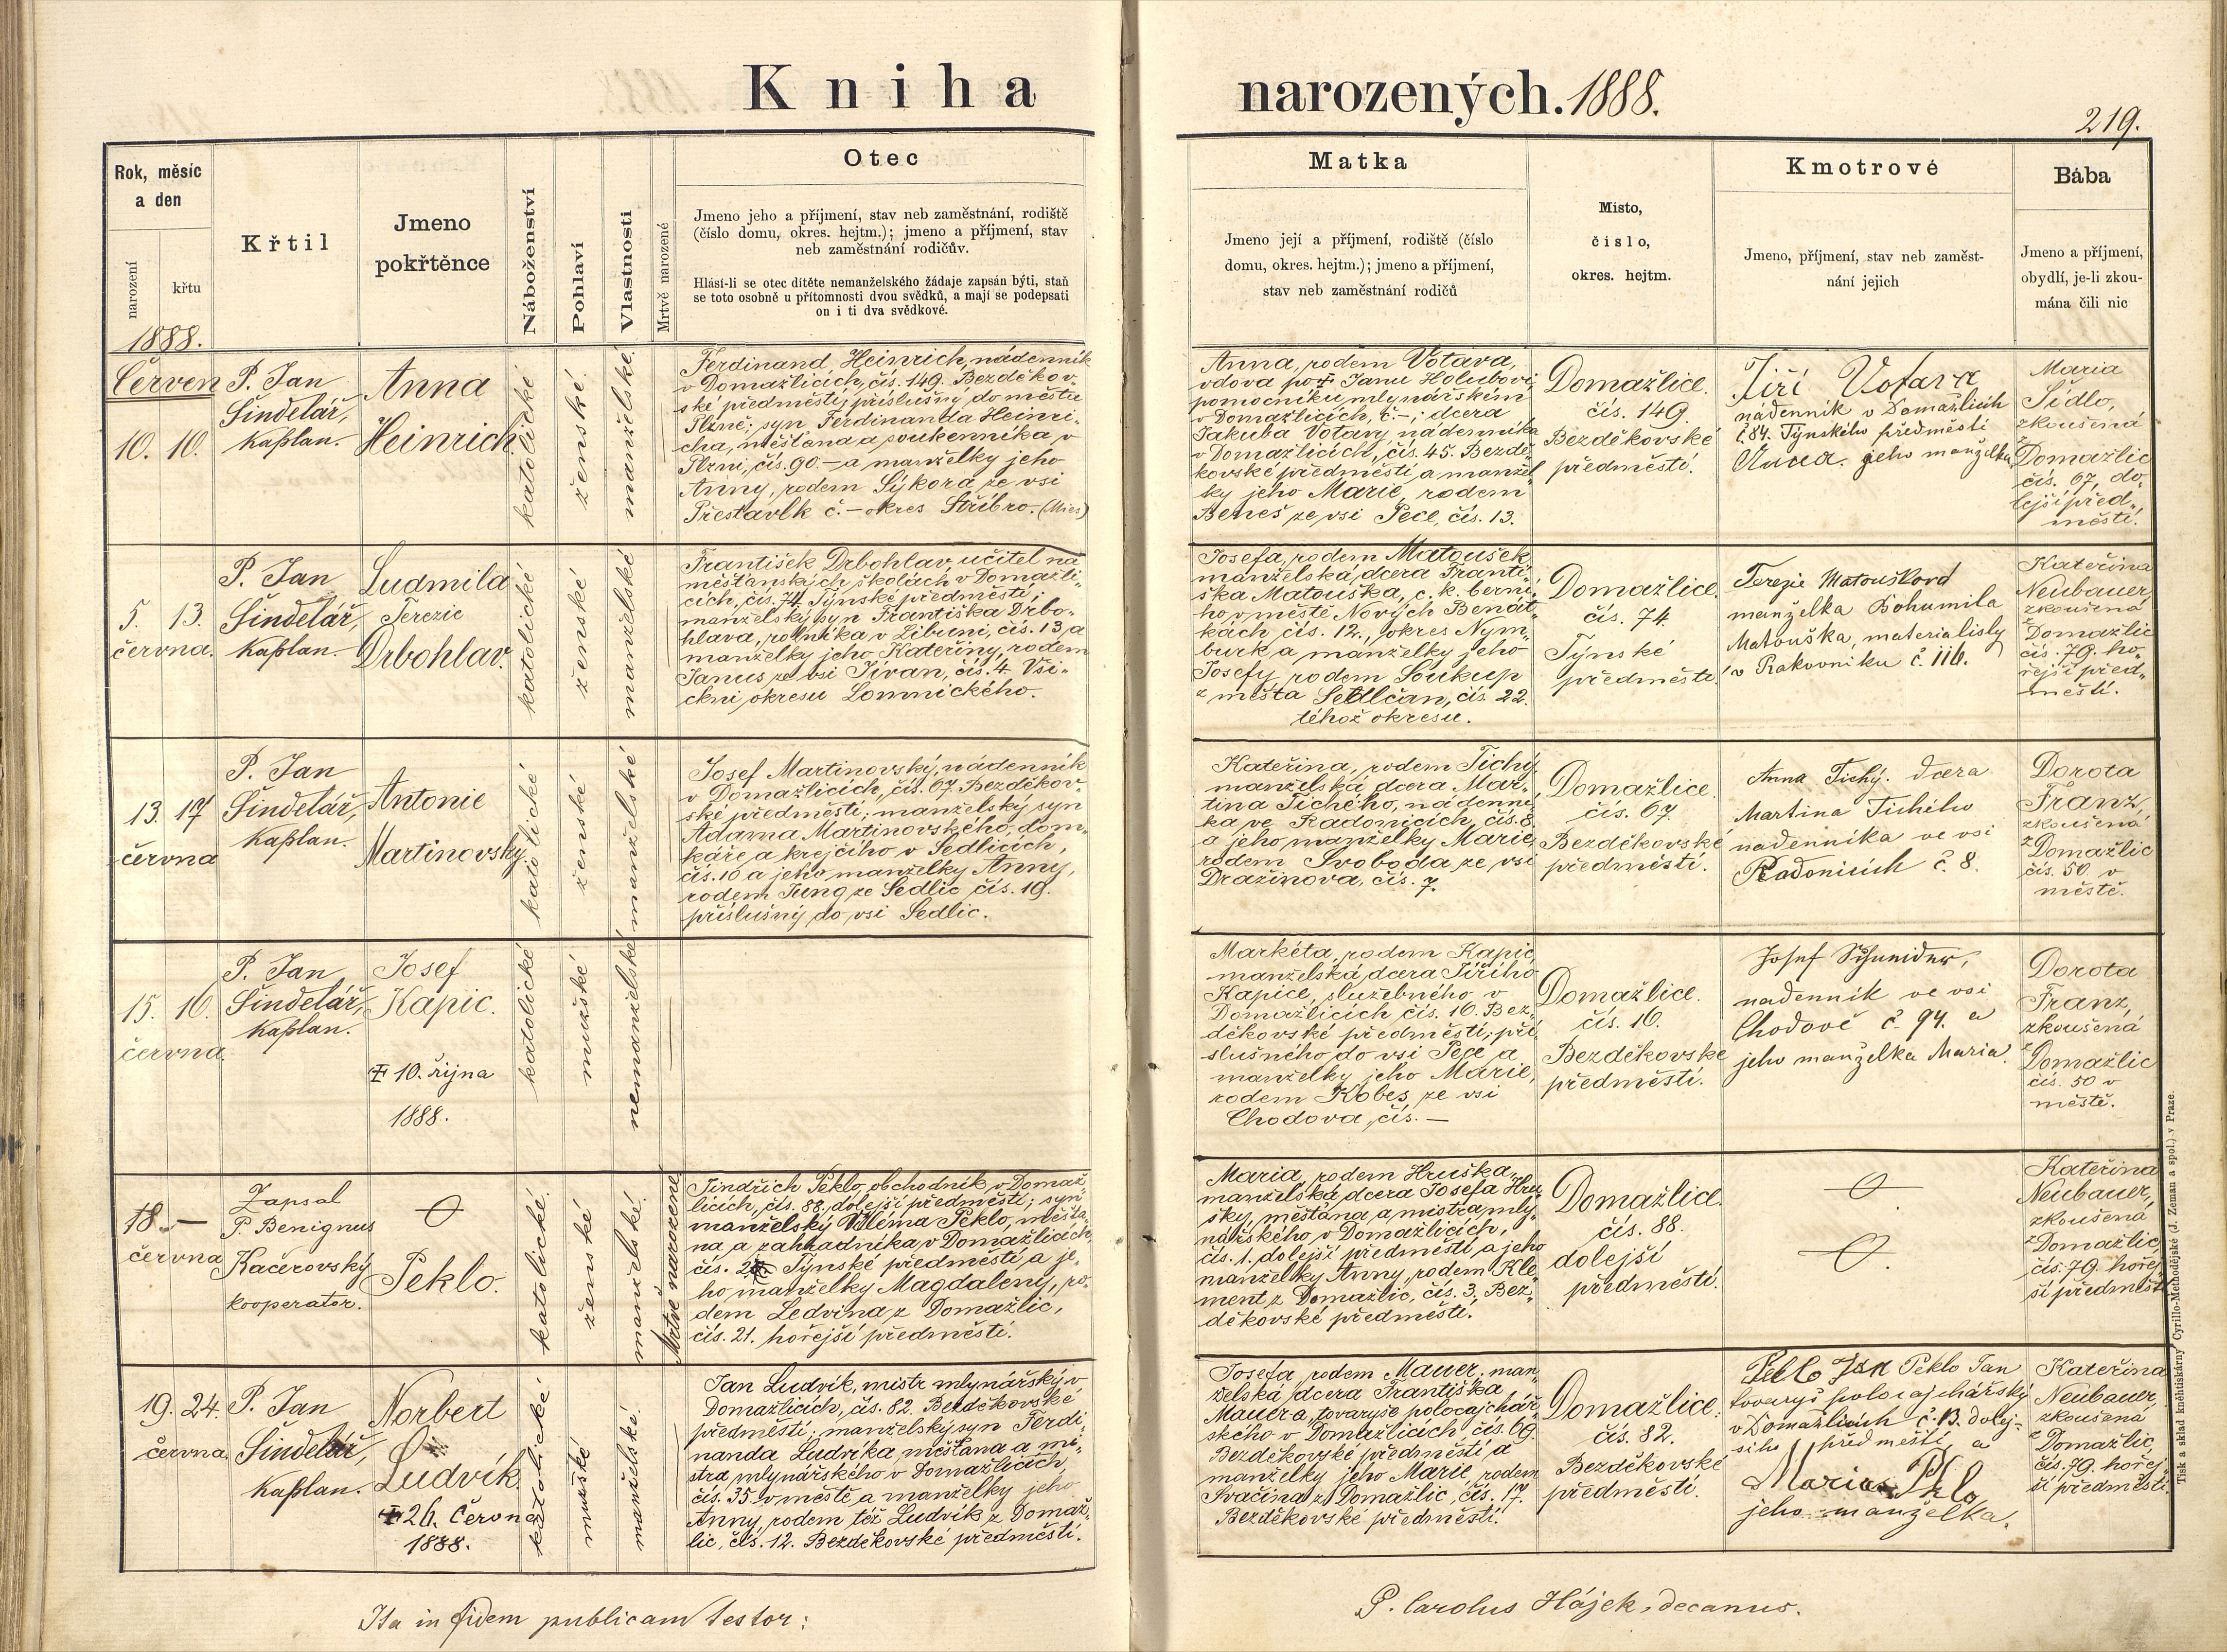 Kniha narozených. 1888.
219.
Rok, měsíc
a den
narození
křtu
Křtil
Jmeno
pokřtěnce
Náboženství
Pohlaví
Vlastnosti
Mrtvě narozené
Otec
Jmeno jeho a příjmení, stav neb zaměstnání, rodiště
(číslo domu, okres. hejtm.); jmeno a příjmení, stav
neb zaměstnání rodičův.
Hlásí-li se otec dítěte nemanželského žádaje zapsán býti, staň
se toto osobně u přítomnosti dvou svědků, a mají se podepsati
on i ti dva svědkové.
Matka
Jmeno její a příjmení, rodiště (číslo
domu, okres. hejtm.); jmeno a příjmení,
stav neb zaměstnání rodičů
Místo,
číslo,
okres. hejtm.
Kmotrové
Jmeno, příjmení, stav neb zaměst-
nání jejich
Bába
Jmeno a příjmení,
obydlí, je-li zkou-
mána čili nic
1888.
Červen
10. 10.
P. Jan
Šindelář,
kaplan.
Anna
Heinrich.
katolické
ženské.
manželské.
Ferdinand Heinrich, nádenník
v Domažlicích, čís. 149. Bezděkov-
ské předměstí, příslušný do města
Plzně; syn Ferdinanda Heinri-
cha, měšťana a soukenníka v
Plzni, čís. 90. – a manželky jeho
Anny, rodem Sýkora ze vsi
Přestavlk č. – okres Stříbro. (Mies)
Anna, rodem Votava,
vdova po † Janu Holubovi,
pomocníku mlynářském
v Domažlicích, č. –; dcera
Jakuba Votavy nádenníka
v Domažlicích, čís. 45. Bezdě-
kovské předměstí, a manžel-
ky jeho Marie, rodem
Beneš ze vsi Pece, čís. 13.
Domažlice.
čís. 149.
Bezděkovské
předměstí.
Jiří Votava
nádenník v Domažlicích
č 84. Týnského předměstí
Anna. jeho manželka
Maria
Sídlo,
zkoušená
z
Domažlic
čís. 67, do-
lejší před-
městí.
5. 13.
června.
P. Jan
Šindelář,
kaplan.
Ludmila
Terezie
Drbohlav.
katolické
ženské
manželské
František Drbohlav, učitel na
měšťanských školách v Domažli-
cích, čís. 74 Týnské předměstí;
manželský syn Františka Drbo-
hlava, rolníka v Libuni, čís. 13, a
manželky jeho Kateřiny, rodem
Janus ze vsi Jívan, čís. 4. Vši-
ckni okresu Lomnického.
Josefa, rodem Matoušek
manželská dcera Franti-
ška Matouška, c. k. berní-
ho v městě Nových Benát-
kách čís. 12., okres Nym-
burk a manželky jeho
Josefy, rodem Soukup
z města Sedlčan, čís. 22.
téhož okresu.
Domažlice.
čís. 74
Týnské
předměstí.
Terezie Matoušková
manželka Bohumila
Matouška, materialisty
v Rakovníku č. 116.
Kateřina
Neubauer,
zkoušená
z
Domažlic
čís. 79. ho-
řejší před-
městí.
13. 17
června
P. Jan
Šindelář,
kaplan.
Antonie
Martinovský.
katolické
ženské
manželské
Josef Martinovský, nádenník
v Domažlicích, čís. 67. Bezděkov-
ské předměstí; manželský syn
Adama Martinovského, dom-
káře a krejčího v Sedlicích,
čís. 16 a jeho manželky Anny,
rodem Jung ze Sedlic čís. 19.
příslušný do vsi Sedlic.
Kateřina, rodem Tichý,
manželská dcera Mar-
tina Tichého, nádenní-
ka ve Radonicích, čís. 8.
a jeho manželky Marie,
rodem Svoboda ze vsi
Dražinova, čís. 7.
Domažlice.
čís. 67
Bezděkovské
předměstí.
Anna Tichý. dcera
Martina Tichého
nadenníka ve vsi
Radonicích č. 8.
Dorota
Franz,
zkoušená
z
Domažlic
čís. 50. v
městě.
15. 16.
června.
P. Jan
Šindelář,
kaplan.
Josef
Kapic.
‡ 10. října
1888.
katolické
mužské
nemanželské
Markéta, rodem Kapic,
manželská dcera Jiřího
Kapice, služebného v
Domažlicích čís. 16. Bez-
děkovské předměstí; pří-
slušného do vsi Pece a
manželky jeho Marie,
rodem Kobes ze vsi
Chodova, čís. –
Domažlice.
čís. 16.
Bezděkovské
předměstí.
Josef Schneider,
nadenník ve vsi
Chodově č. 94. a
jeho manželka Maria.
Dorota
Franz,
zkoušená
z
Domažlic
čís. 50 v
městě.
18. –
června
Zapsal
P. Benignus
Kačerovský
kooperator.
Peklo.
katolické.
ženské
manželské.
Mrtvě narozené
Jindřich Peklo, obchodník v Domaž-
licích, čís. 88. dolejší předměstí; syn
manželský Viléma Peklo, měšťa-
na a zahradníka v Domažlicích,
čís. Týnské předměstí a je-
ho manželky Magdaleny, ro-
dem Ledvina z Domažlic,
čís. 21. hořejší předměstí.
Maria, rodem Hruška,
manželská dcera Josefa Hru-
šky, měšťana a mistra mly-
nářského v Domažlicích,
čís. 1. dolejší předměstí a jeho
manželky Anny, rodem Kle-
ment z Domažlic, čís. 3. Bez-
děkovské předměstí.
Domažlice.
čís. 88.
dolejší
předměstí.
Kateřina
Neubauer,
zkoušená
z
Domažlic,
čís. 79. hořej-
ší předměstí
19. 24.
června.
P. Jan
Šindelář,
kaplan.
Norbert
Ludvík.
‡ 26. Června
1888.
katolické
mužské
manželské.
Jan Ludvík, mistr mlynářský v
Domažlicích, čís. 82. Bezděkovské
předměstí; manželský syn Ferdi-
nanda Ludvíka, měšťana a mi-
stra mlynářského v Domažlicích
čís. 35 v městě a manželky jeho
Anny, rodem též Ludvík z Domaž-
lic, čís. 12. Bezděkovské předměstí.
Josefa, rodem Mauer, man-
želská dcera Františka
Mauera, tovaryše polocajchář-
ského v Domažlicích, čís. 69.
Bezděkovské předměstí a
manželky jeho Marie, rodem
Svačina z Domažlic, čís. 17.
Bezděkovské předměstí.
Domažlice.
čís. 82.
Bezděkovské
předměstí.
Peklo Jan Peklo Jan
tovaryš polocajchářský
v Domažlicích č. 13. dolej-
šího předměstí, a
Marie
jeho manželka.
Kateřina
Neubauer
zkoušená
z
Domažlic,
čís. 79. hořej-
ší předměstí.
Ita in fidem publicam testor:
P. Carolus Hájek, decanus.
Tisk a sklad kněhtiskárny Cyrillo-Methodějské (J. Zeman a spol.) v Praze.